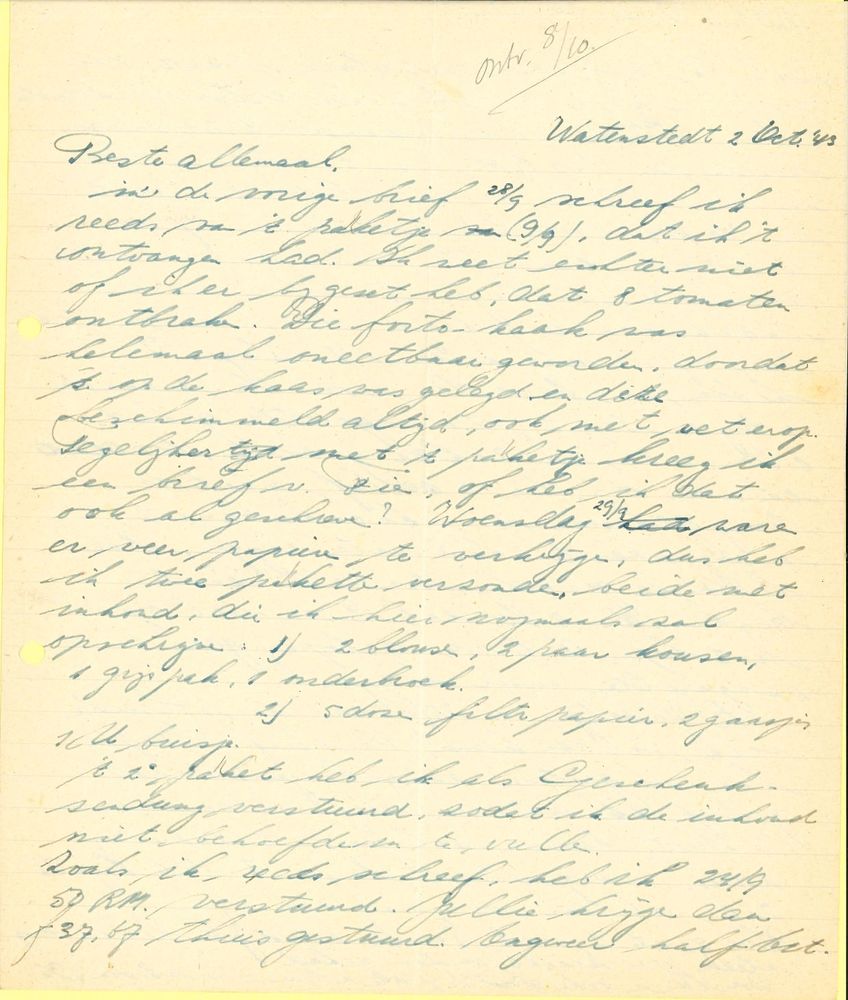 ontv. 8/10.
Watenstedt 2 Oct. '43
Beste allemaal.
in de vorige brief 28/9 schreef ik
reeds van 't paketje (9/9), dat ik 't
ontvangen had. Ik weet echter niet
of ik er bijgezet heb, dat 8 tomaten
ontbraken. Die koek was
helemaal oneetbaar geworden, doordat
't op de kaas was gelegd en deze
beschimmeld altijd, ook met vet erop.
Tegelijkertijd met 't paketje kreeg ik
een brief v. Zie, of heb ik dat
ook al geschreve? Woensdag 29/9 had ware
er weer papiere te verkrijge, dus heb
ik twee pakette verzonde, beide met
inhoud, die ik hier nogmaals zal
opschrijve: 1) 2 blouse, 2 paar kousen,
1 grijs pak, 1 onderbroek.
2) 5 doze filtr papier, 2 gaasjes
1 U buisje.
't 2e paket heb ik als Geschenk-
sendung verstuurd, zodat ik de inhoud
niet behoefde in te vulle.
Zoals ik reeds schreef, heb ik 24/9
50 RM. verstuurd. Jullie krijge dan
f 37,67 thuis gestuurd. Ongeveer half Oct.